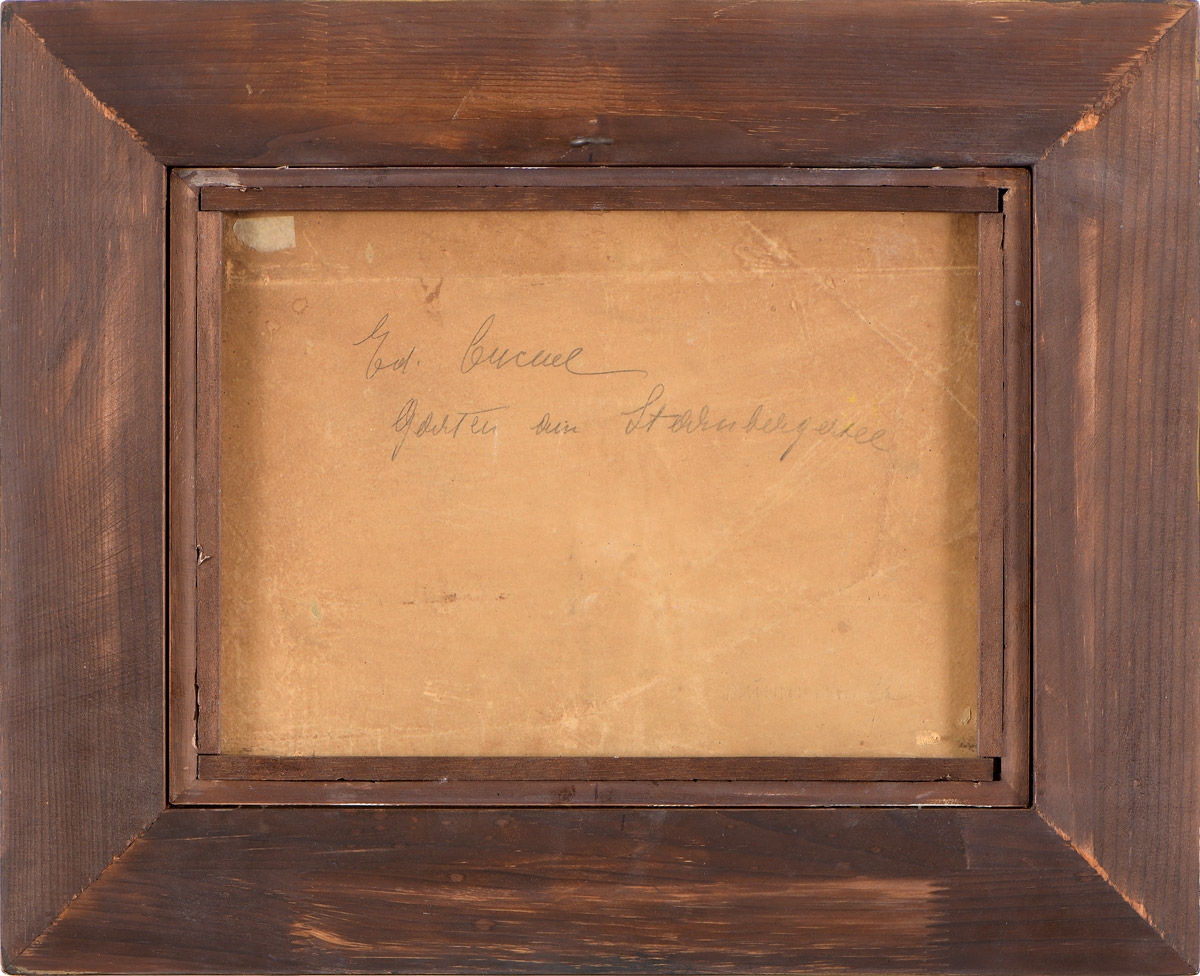 Ed. Cucuel
Garten am Starnbergersee